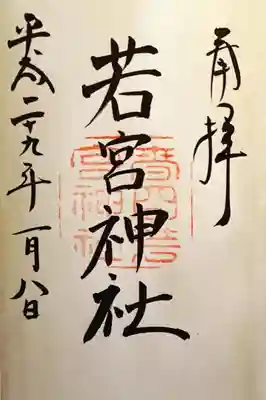 奉拝
若宮神社
平成二十九年一月八日